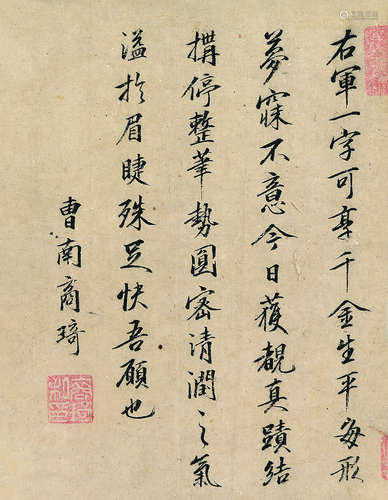 右軍一字可享千金生平每形
夢寐不意今日獲覩真蹟結
搆停整筆勢圓密清潤之氣
溢於眉睫殊足快吾願也
曹南商琦